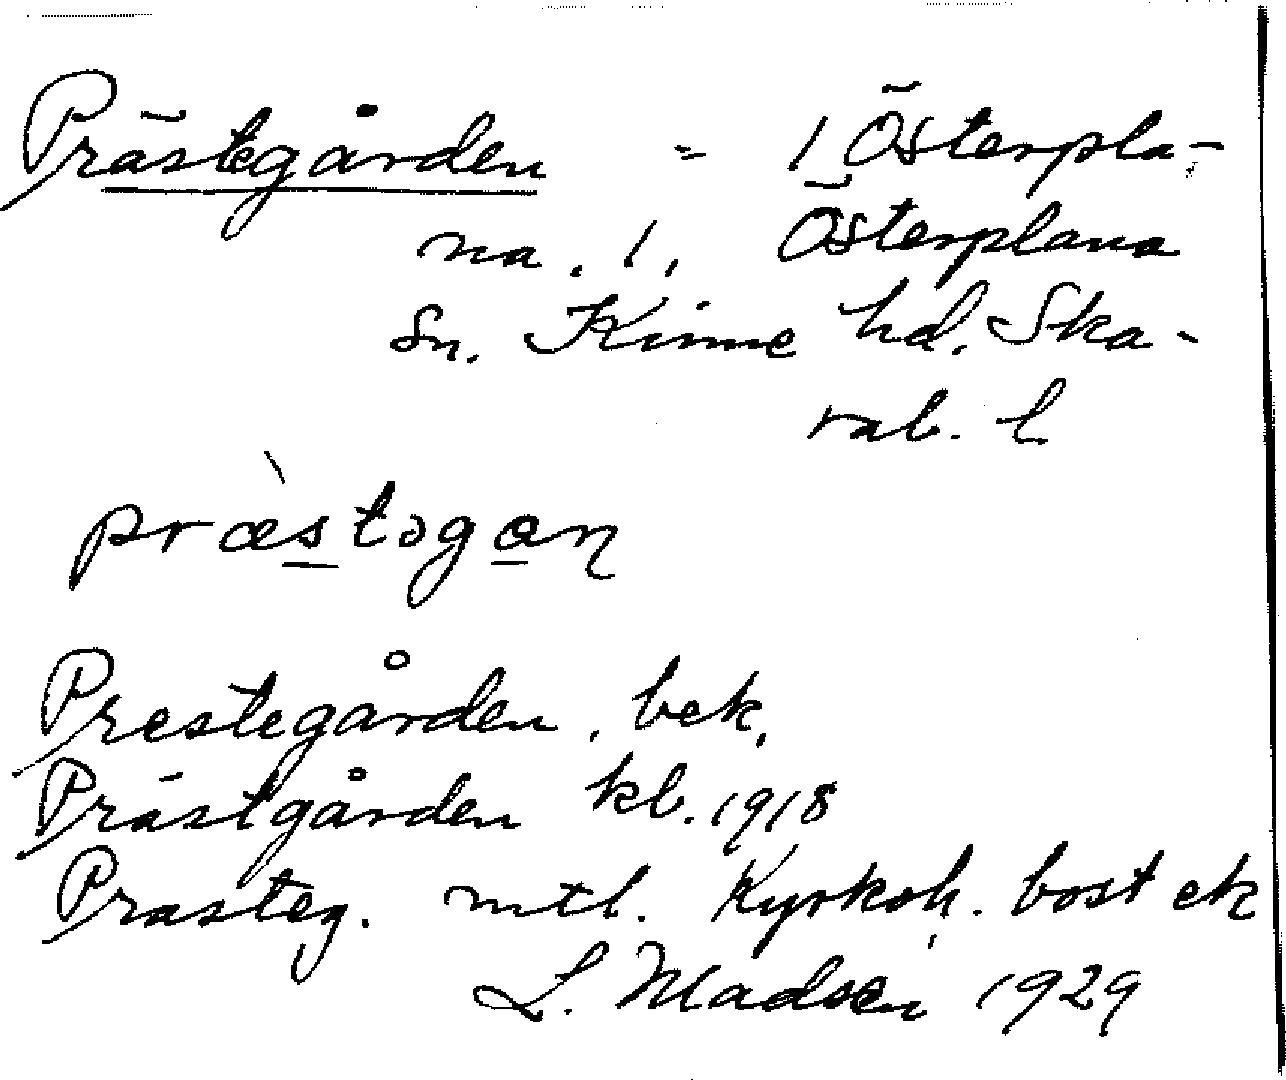 Prästegården = 1 Österpla-
na. 1, Österplana
Sn. Kinne hd. Ska-
rab. l
præ̀stogan
Prestegården, bek,
Prästgården kl. 1918
Prasteg. mtl. Kyrkoh. bost ek
L. Madsén 1929